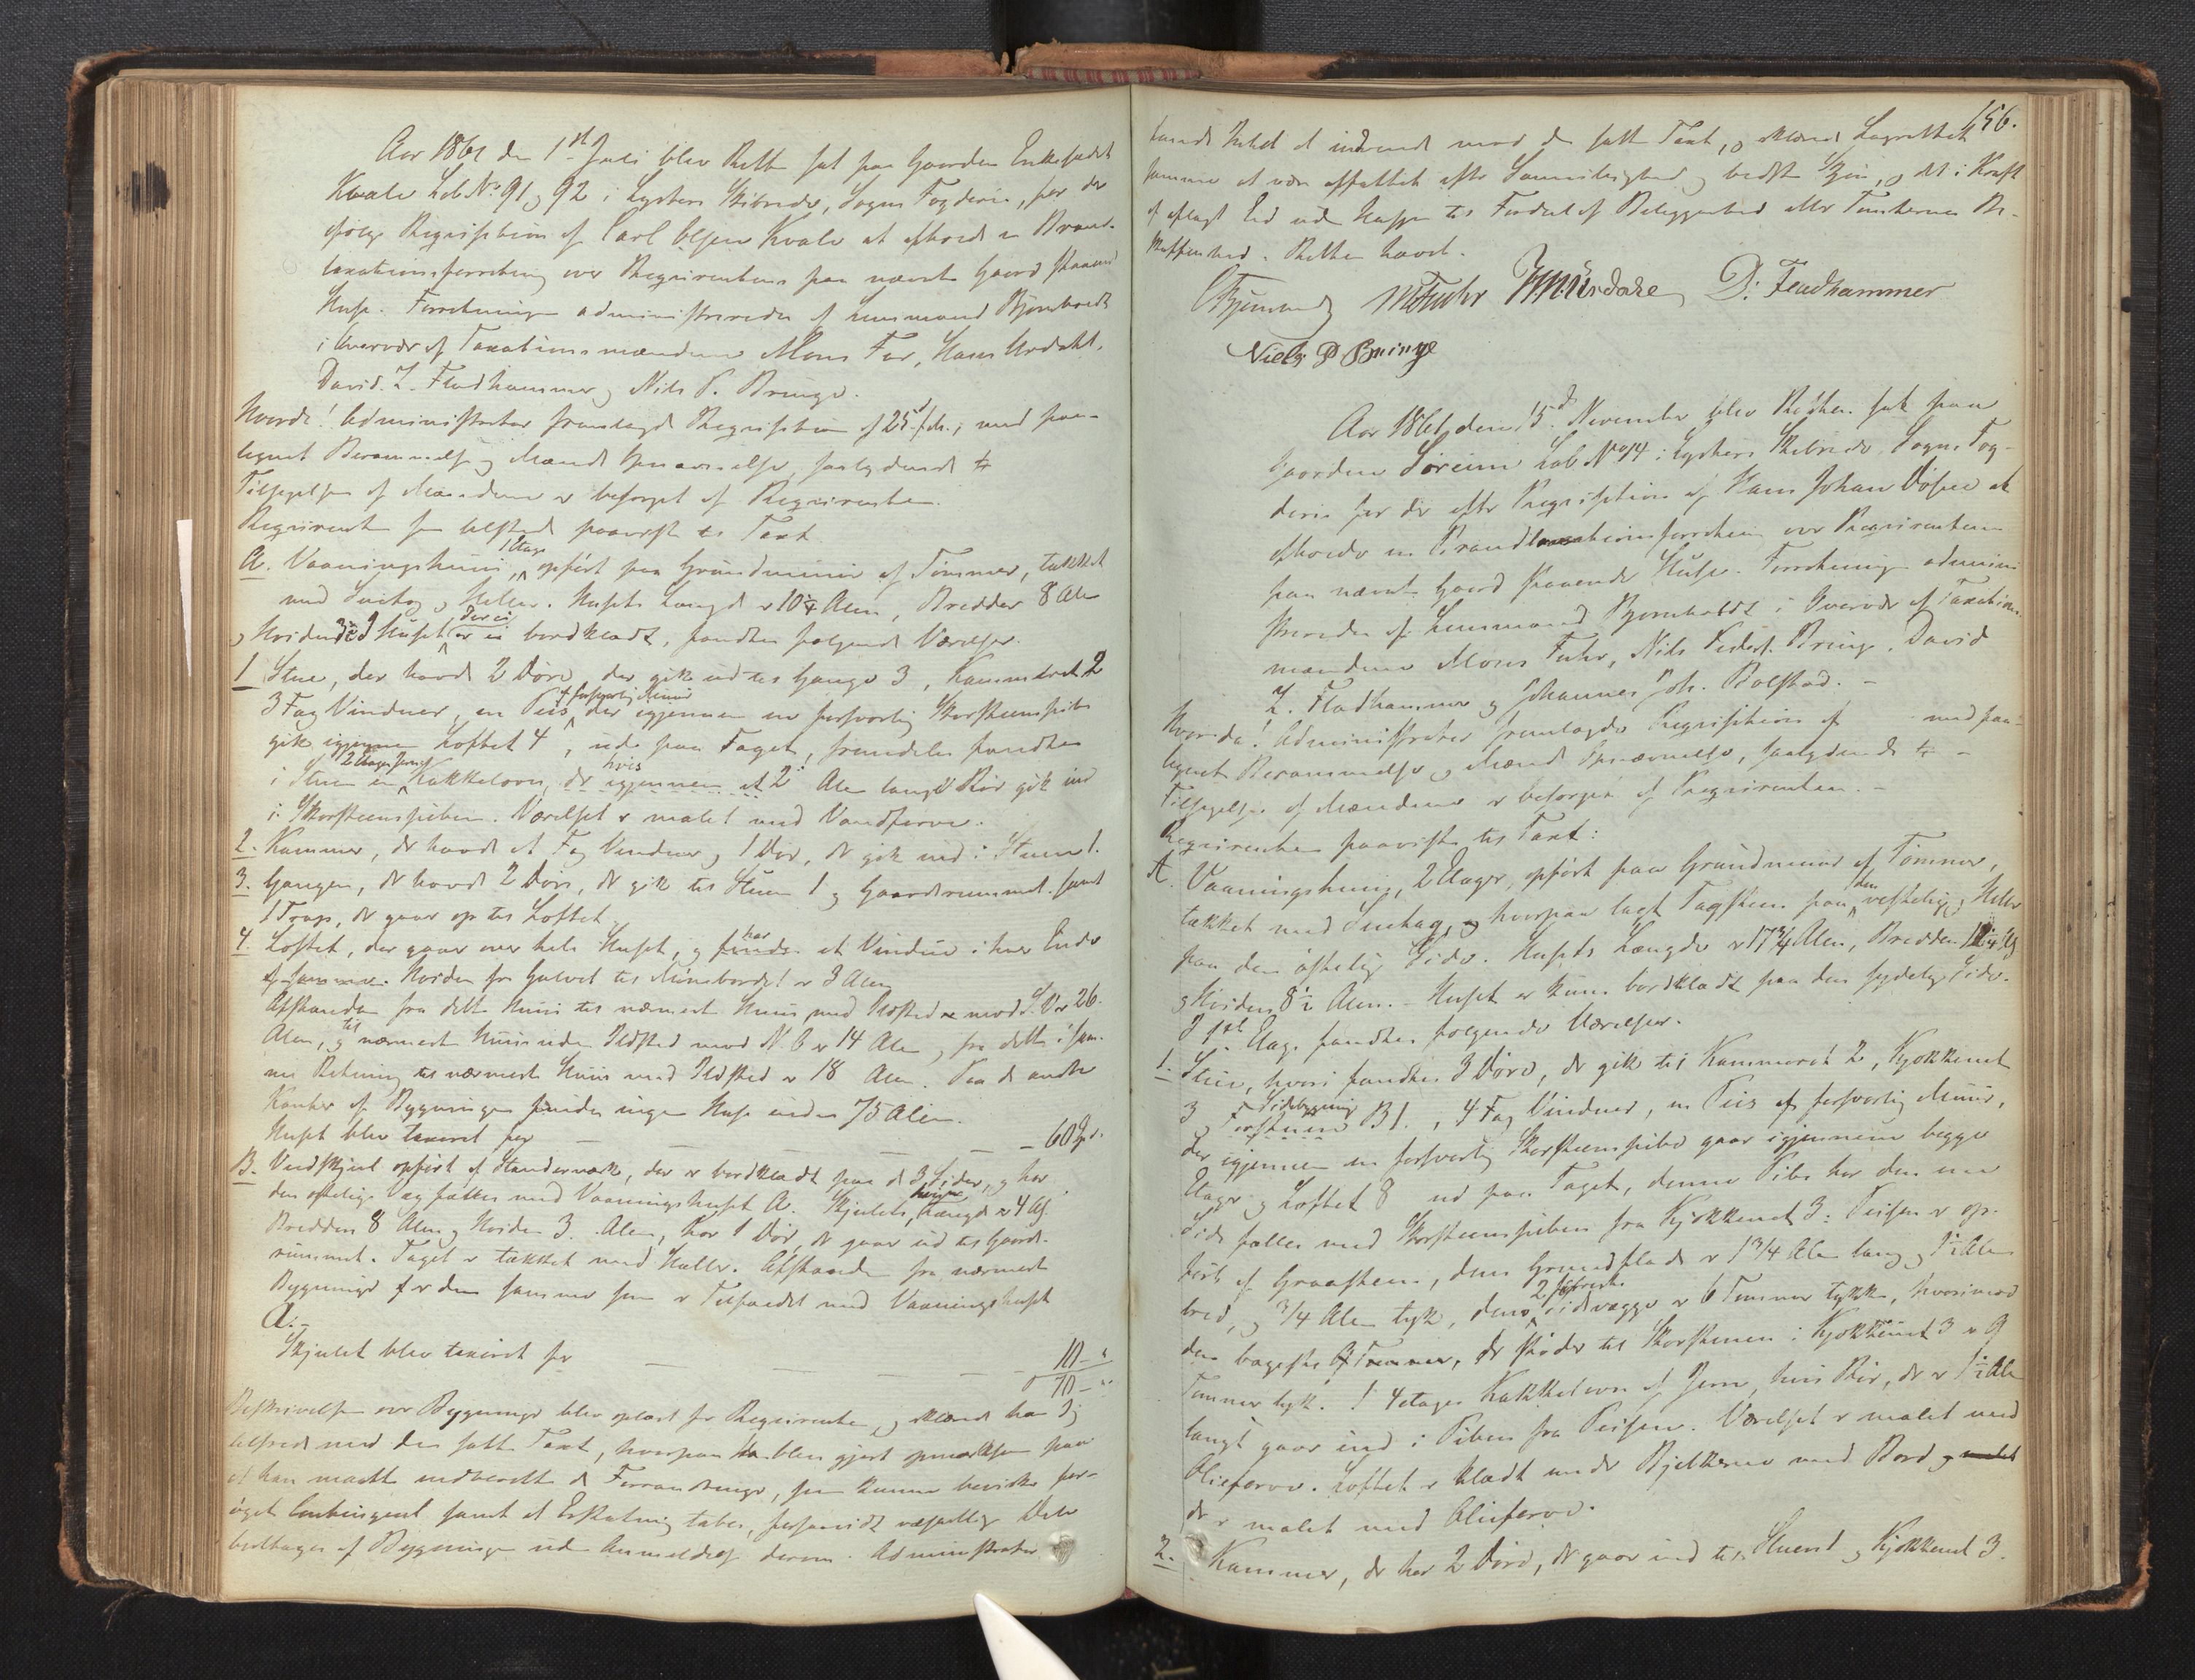 Aar 1861 den 1st Juli blev Retten sat paa Gaarden Enkesædet
Kvale Lob. No 91 og 92 i Lysters Skibrede, Sogns Fogderie, for der
ifølge Requisition af Carl Olsen Kvale at afholde en Brand-
taxationsforretning over Requirentens paa nævnte Gaard staaende
Huse. Forretningen administreredes af Lensmand Bjornholdt
i Overvær af Taxationsmændene Mons Fur, Hans Urdahl,
David Z. Fladhammer og Nils P. Bringe.
Hvorda! Administrator fremlagde Requisition af 25de f. M., med paa-
tegnet Berammelse og Mænds Opnævnelse, saalydende
Tilsigelsen af Mændene er besørget af Requirenten.
Requirenten som tilstede paaviste til Taxt.
A. Vaaningshuus, 1 Etage, opført paa Grundmuur af Tømmer, tækket
med Suetag og Heller. Husets Længde er 10¼ Alen, Bredden 8 Alen
og Høiden 3 I Huset, der ei er bordklædt, fandtes følgende Værelser.
1 Stue, der havde 2 Døre, der gik ud til Gangen 3, Kammeret 2
3 Fag Vinduer, en Peis af forsvarlig Muur der igjennem en forsvarlig Skorsteenspibe
gik igjennem Loftet 4, ud paa Taget, fremdeles fandtes
i Stuen en 2 Etages Jern Kakkelovn, der igjennem et hvis 2 Alen langt Rør gik ind
i Skorsteenspiben. Værelset er malet med Vandfarve.
2. Kammer, der havde et Fag Vinduer og 1 Dør, der gik ind i Stuen 1.
3. Gangen, der havde 2 Døre, der gik til Stuen 1 og Gaardsrummet samt
1 Trap, der gaar op til Loftet.
4. Loftet, der gaar over hele Huset, og findes har et Vindue i hver Ende
af samme. Høiden fra Gulvet til Mønebordet er 3 Alen
Afstanden fra dette Huus til nærmeste Huus med Ildsted er mod S.V. er 26
Alen, og til nærmeste Huus uden Ildsted mod N.O. er 14 Alen, og fra dette i sam-
me Retning til nærmeste Huus med Ildsted er 18 Alen. Paa de andre
Kanter af Bygningen findes ingen Huse inden 75 Alen.
Huset blev taxeret for — — — — 60 Spd.
B. Vedskjul opført af Standerværk, der er bordklædt paa de 3 Sider, og har
den østelige Væg fælles med Vaaningshuset A. Skjulets Længde er 4 Al.
Bredden 8 Alen og Høiden 3 Alen, har 1 Dør, der gaar ud til Gaards-
rummet. Taget er tækket med Heller. Afstanden fra nærmeste
Bygninger er den samme som er Tilfældet med Vaaningshuset
A.-
Skjulet blev taxeret for — — — 10 – "
70 – "
Beskrivelsen over Bygninger blev oplæst for Requirenten, og erklærede han sig
tilfreds med den satte Taxt, hvorpaa han blev gjort opmærksom paa
at han maatte indberette de Forandringer, som kunne bevirke for-
øget Contingent samt at Erstatning tabes, forsaavidt væsentlige Dele
borttages af Bygningen uden Anmeldelse derom. Administrator
156.
fandt Intet at indvende mod den satte Taxt, og erklærede Lagrettet
samme at være affattet efter Samvittighed og bedste Skjøn, og det i Kraft
af aflagt Eed uden Hensyn til Fordeel af Beliggenhed eller Tomternes Be-
skaffenhed. Retten hævet.
CBjørnholdt MOFuhr HMUrdahl D: Feadhammer
Niels P Bringe
Aar 1861, den 15d November blev Retten sat paa
Gaarden Søreim Lob No 14 i Lysters Skibrede, Sogns Fog-
derie for der efter Requisition af Hans Johan Døsen at
afholde en Brandtaxationsforretning over Requirentens
paa nævnte Gaard staaende Huse. Forretningen admini-
streredes af Lensmand Bjornholdt i Overvær af Taxations-
mændene Mons Fuhr, Nils Peders. Bringe, David
Z. Fladhammer og Johannes Joh. Bolstad. –
Hvorda! Administrator fremlagde Requisition af med paa-
tegnet Berammelse og Mænds Opnævnelse, saalydende –
Tilsigelse af Mændene er besørget af Requirenten. –
Requirenten paaviste til Taxt:
A. Vaaningshuus, 2 Etager, opført paa Grundmuur af Tømmer,
tækket med Suetag, og hvorpaa lagt Tagsteen paa den vestelige og Heller
paa den østelige Side. Husets Længde er 17¾ Alen, Bredden Al.
og Høiden 8½ Alen. – Huset er kuns bordklædt paa den sydelige Side.
I 1ste Etage fandtes følgende Værelser.
1. Stue, hvori fandtes 3 Døre, der gik til Kammeret 2, Kjøkkenet
3 og Forstuen Sidebygning B 1., 4 Fag Vinduer, en Peis af forsvarlig Muur,
der igjennem en forsvarlig Skorsteenspibe gaar igjennem begge
Etager og Loftet 8 ud paa Taget, denne Pibe har den ene
Side fælles med Skorsteenspiben fra Kjøkkenet 3: Peisen er op-
ført af Graasteen, dens Grundflade er 1¾ Alen lang og 1½ Alen
bred, og ¾ Alen tyk, dens 2 Sidevægge er 6 Tommer tykke, hvorimod
den bageste Tommer, der støder til Skorstenen i Kjøkkenet 3 er 9
Tommer tyk. 1 4 etages Kakkelovn af Jern, hvis Rør, der er 1½ Alen
langt gaar ind i Piben fra Peisen. Værelset er malet med
Oliefarve. Loftet er klædt under Bjelkerne med Bord og malet
der er malet med Oliefarve.
2. Kammer, der har 2 Døre, der gaar ind til Stuen 1 og Kjøkkenet 3.